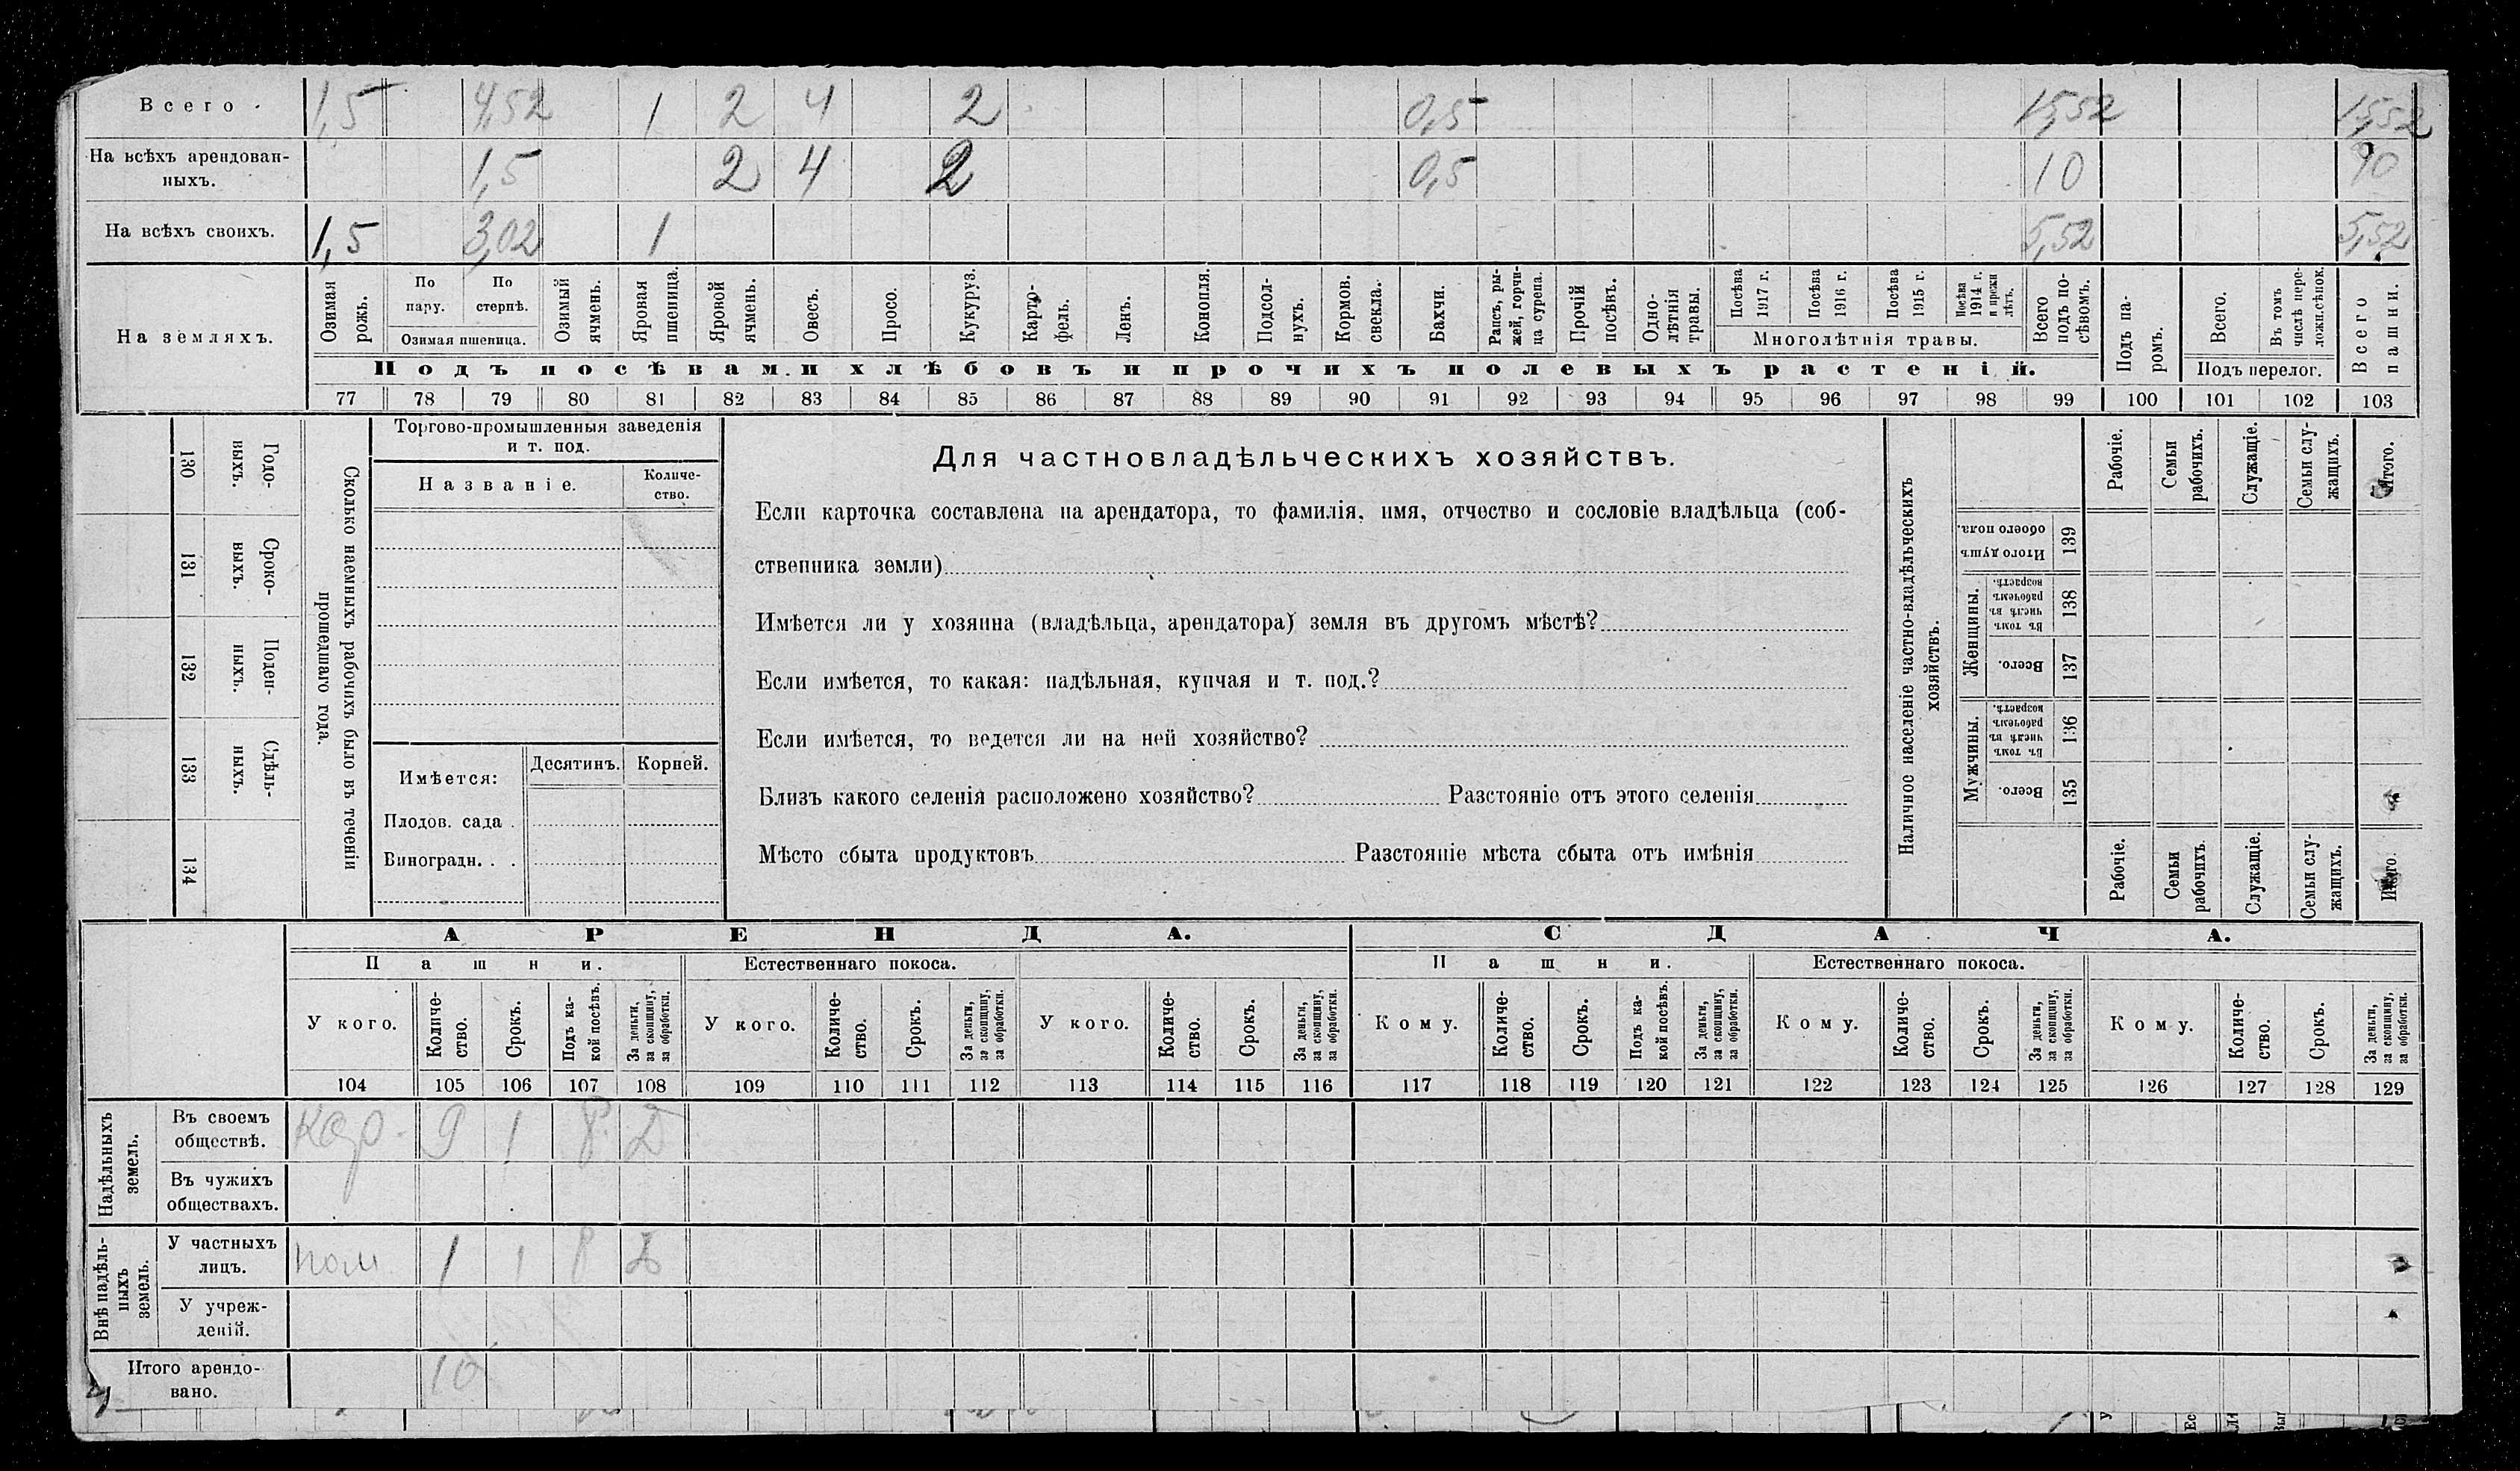 Всего 1,5 4,52 1 2 4 2 0,5 15,52 15,52
На всѣхъ арендован-
ныхъ. 1,5 2 4 2 0,5 10 10
На всѣхъ своихъ. 1,5 3,02 1 5,52 5,52
На земляхъ. Озимая рожь. По пару. По стернѣ. Озимая пшеница. Озимый ячмень. Яровая пшеница. Яровой ячмень. Овесъ. Просо. Кукуруз. Карто-фель. Ленъ. Конопля. Подсол-нухъ. Кормов. свекла. Бахчи. Рапсъ, ры-жей, горчи-ца сурепа. Прочій посѣвъ. Одно-лѣтнія травы. Посѣва 1917 г. Посѣва 1916 г. Посѣва 1915 г. Посѣва 1914 г. и прежн лѣтъ. Многолѣтнія травы. Всего подъ по-сѣвомъ. Подъ па-ромъ. Всего. Въ томъ числѣ пере-ложн.сѣнок. Подъ перелог. Всего пашни.
Подъ посѣвами хлѣбовъ и прочихъ полевыхъ растеній.
77 78 79 80 81 82 83 84 85 86 87 88 89 90 91 92 93 94 95 96 97 98 99 100 101 102 103
Сколько наемныхъ рабочихъ было въ теченіи
прошедшаго года.
Годо-
выхъ.
130
Сроко-
выхъ.
131
Поден-
ныхъ.
132
Сдѣль-
ныхъ.
133
134
Торгово-промышленныя заведенія
и т. под.
Названіе. Количе-
ство.
Имѣется: Десятинъ. Корней.
Плодов. сада .
Виноградн. . .
Для частновладѣльческихъ хозяйствъ.
Если карточка составлена на арендатора, то фамилія, имя, отчество и сословіе владѣльца (соб-
ственника земли)
Имѣется ли у хозяина (владѣльца, арендатора) земля въ другомъ мѣстѣ?
Если имѣется, то какая: надѣльная, купчая и т. под.?
Если имѣется, то ведется ли на ней хозяйство?
Близъ какого селенія расположено хозяйство? Разстояніе отъ этого селенія
Мѣсто сбыта продуктовъ Разстояніе мѣста сбыта отъ имѣнія
Наличное населеніе частно-владѣльческихъ
хозяйствъ.
Рабочіе. Семьи рабочихъ. Служащіе. Семьи слу-жащихъ. Итого.
Итого душъ обоего пола. 139
Женщины. Въ томъ числѣ въ рабочемъ возрастѣ. 138
Всего. 137
Мужчины. Въ томъ числѣ въ рабочемъ возрастѣ. 136
Всего. 135
Рабочіе. Семьи рабочихъ. Служащіе. Семьи слу-жащихъ. Итого.
АРЕНДА. СДАЧА.
Пашни. Естественнаго покоса. Пашни. Естественнаго покоса.
У кого. Количе-ство. Срокъ. Подъ ка-кой посѣвъ. За деньги, за скопщину, за обработки. У кого. Количе-ство. Срокъ. За деньги, за скопщину, за обработки. У кого. Количе-ство. Срокъ. За деньги, за скопщину, за обработки. Кому. Количе-ство. Срокъ. Подъ ка-кой посѣвъ. За деньги, за скопщину, за обработки. Кому. Количе-ство. Срокъ. За деньги, за скопщину, за обработки. Кому. Количе-ство. Срокъ. За деньги, за скопщину, за обработки.
104 105 106 107 108 109 110 111 112 113 114 115 116 117 118 119 120 121 122 123 124 125 126 127 128 129
Надѣльныхъ
земель.
Въ своемъ
обществѣ. 9 1 Д
Въ чужихъ
обществахъ.
Внѣ надѣль-
ныхъ
земель.
У частныхъ
лицъ. пом 1 1 Д
У учреж-
деній.
Итого арендо-
вано. 10